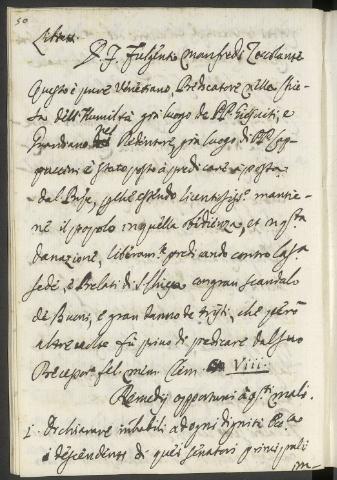 50
Lettera.
P. F. Fulgentio Manfredi Zoccolante
Questo è pure Venetiano, Predicatore nella Chie-
sa dell'Humiltà già luogo de PP. Giesuiti, e
nel Redentore, già luogo di PP. Cap-
puccini è stato posto à predicare à posta
dal Duse, essendo licentiosiss.º mantie-
ne il popolo in quella obidienza, et nostra
danazione, liberam.te predicando contro la Sa.
Sede, e Prelati di S. Chiesa con gran scandalo
de Buoni, e gran danno de tristi, che però
altre volte fù privo di predicare dal suo
Precessore fel. mem. Clem. VIII.
Remedij opportuni à q.sti mali.
1. Dichiarare inhabili ad ogni dignità Ecc.ca
i descendenti di quei senatori principali